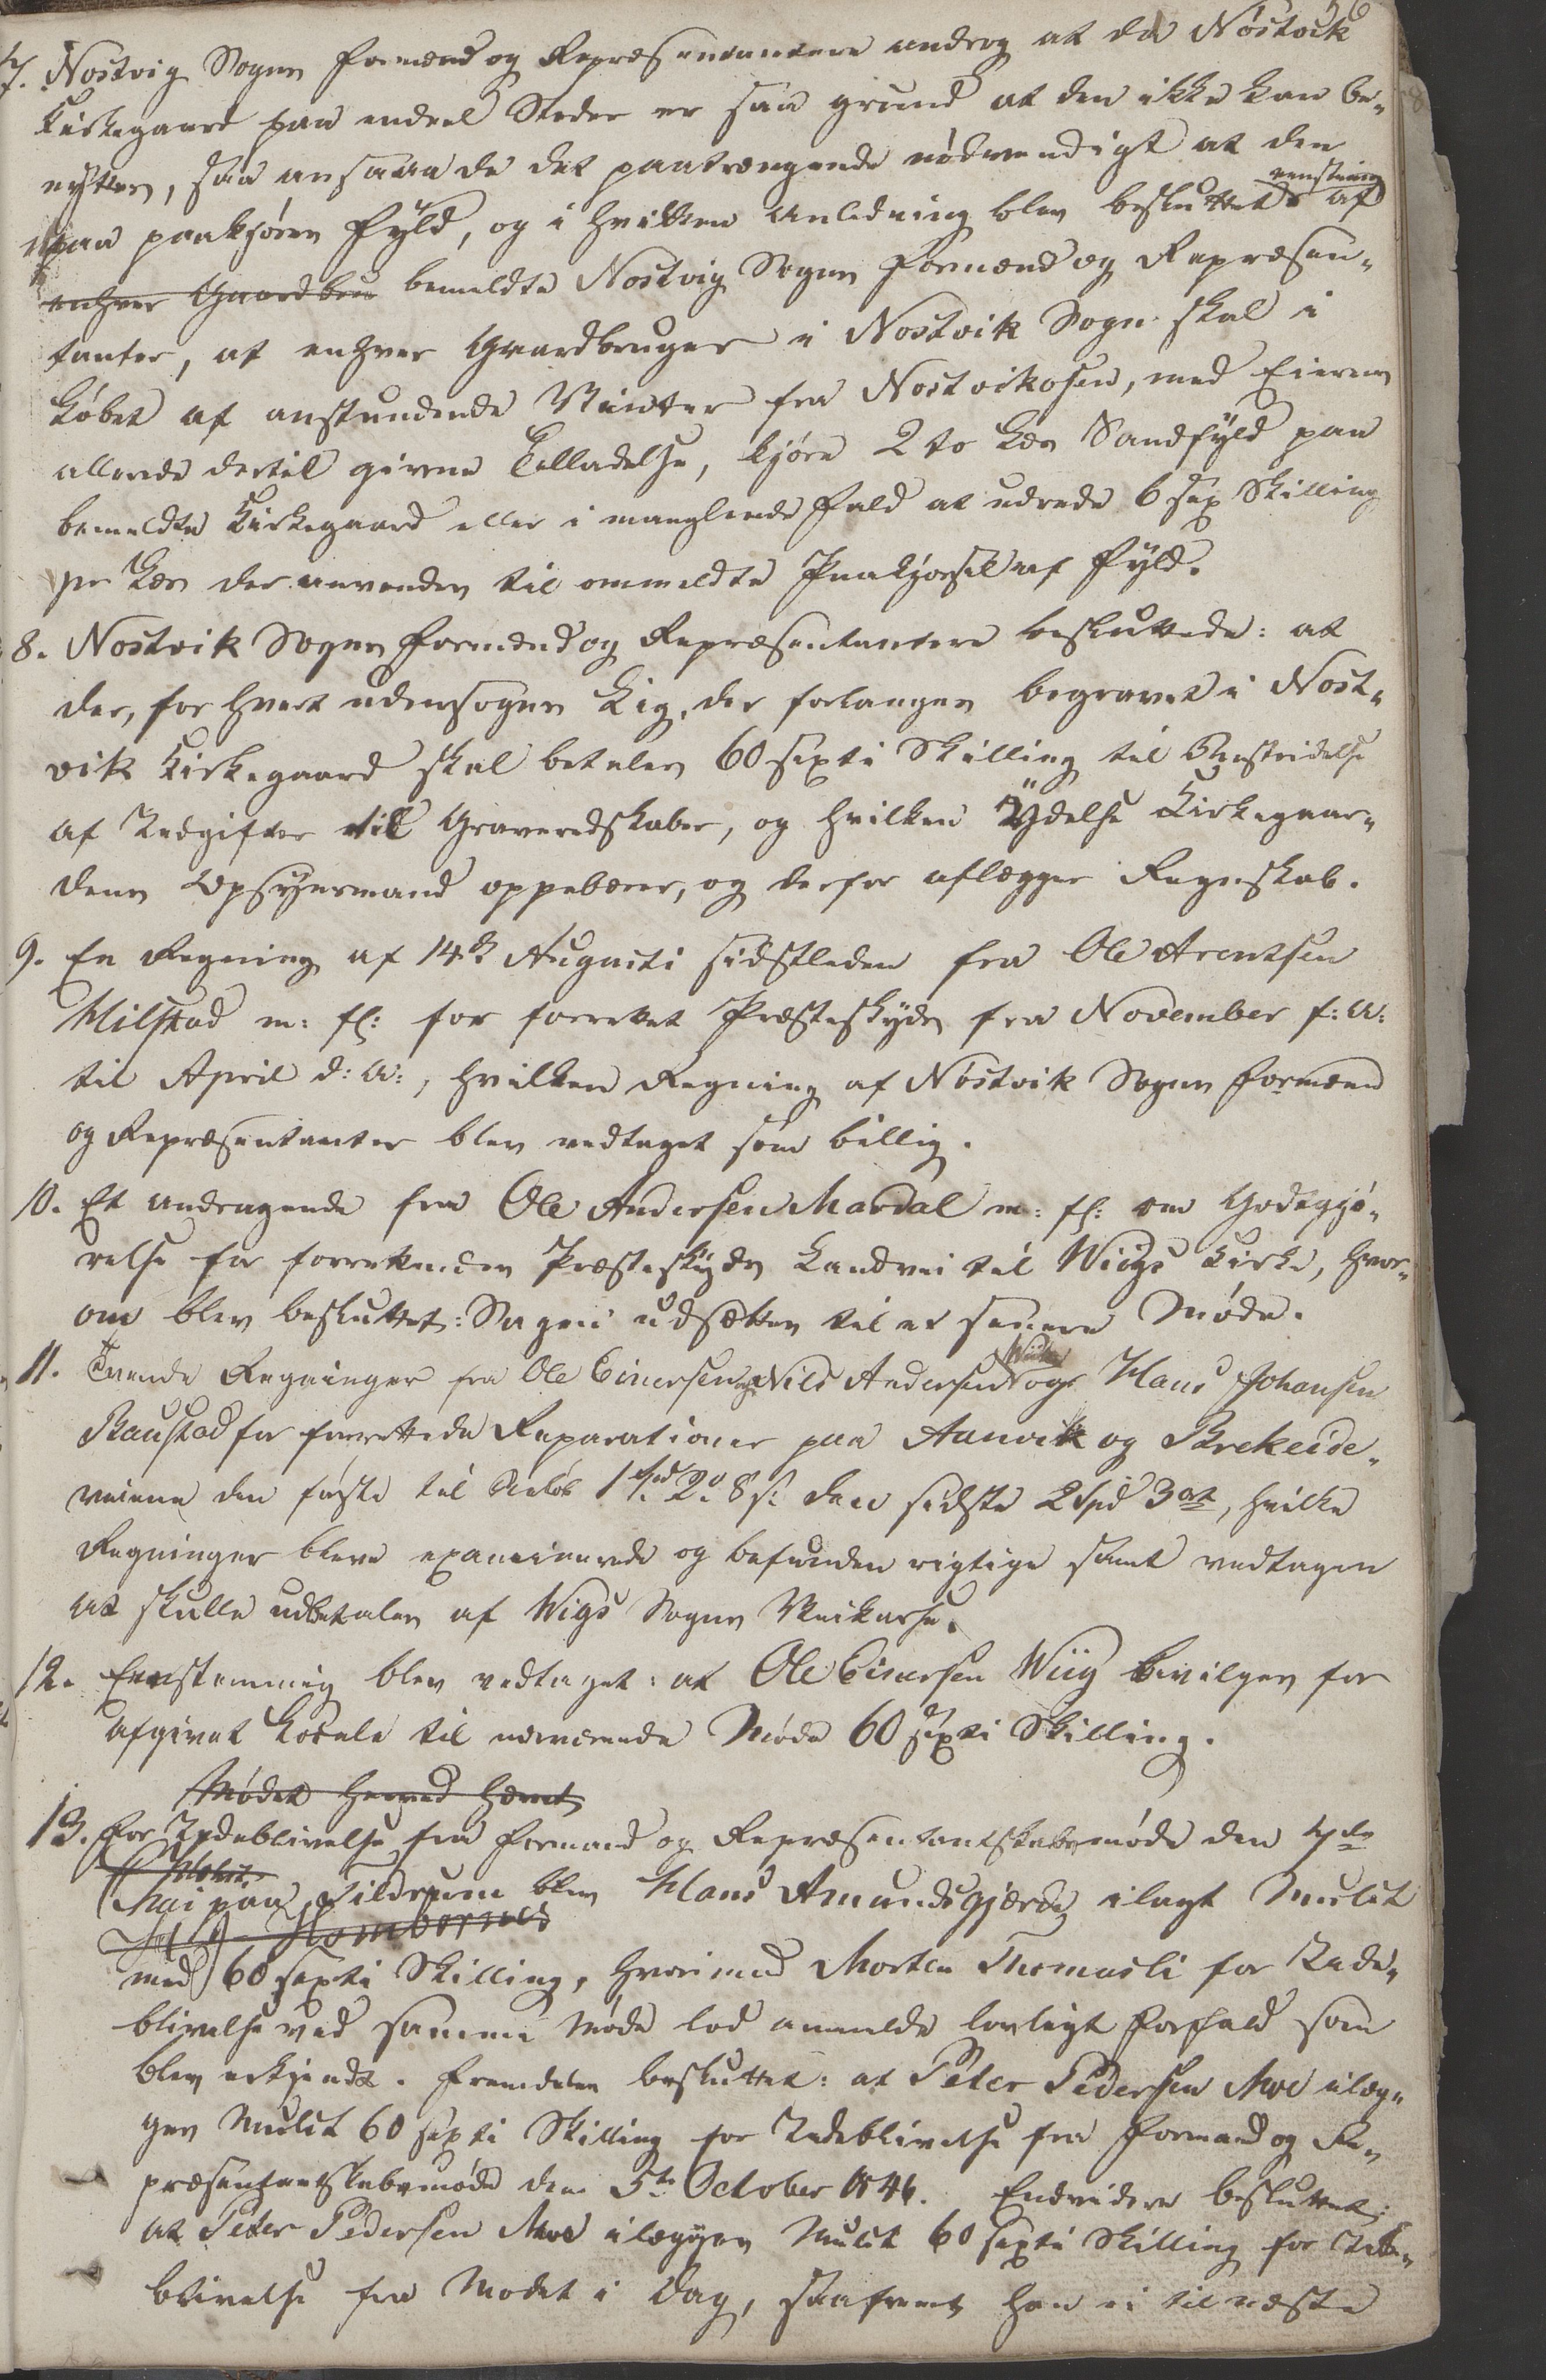 7. Nostvig Sogns Formænd og Repræsentantere androg at da Nostvik
Kirkegaard paa endeel Steder er saa grund at den ikke kan be-
nyttes, saa ansaae de det paatrængende nødvendigt at den
paa paakjøres Fyld, og i hvilken Anledning blev besluttet eenstemig af
enhver Gaardbru bemeldte Nostvig Sogns Formænd og Repræsen-
tanter, at enhver Gaardbruger i Nostvik Sogn skal i
Løbet af anstundende Vinter fra Nostvikosen, med Eierens
allerede dertil givne Tilladelse, kjøre 2 to Læs Sandfyld paa
bemeldte Kirkegaard eller i manglende Fald at udrede 6 sex Skilling
pr Læs der anvendes til ommeldte Paakjørsel af Fyld.
8. Nostvik Sogns Formænd og Repræsentantere besluttede: at
der, for hvert udensogns Lig, der forlanges begravet i Nost-
vik Kirkegaard skal betales 60 sexti Skilling til Bestridelse
af Udgifter til Graveredskaber, og hvilken Ydelse Kirkegaar-
dens Opsynsmand oppebærer, og derfor aflægger Regnskab.
9. En Regning af 14de Augusti sidstleden fra Ole Arentsen
Milstad m: fl: for forrettet Præsteskyds fra November f: A:
til April d: A:, hvilken Regning af Nostvik Sogns Formænd
og Repræsentanter blev vedtaget som billig.
10. Et Andragende fra Ole Andersen Mardal m: fl: om Godtgjø-
relse for forrettendes Præsteskyds Landvei til Wiigs Kirke, hvor-
om blev besluttet: Sagen udsættes til et senere Møde.
11. Tvende Regninger fra Ole Einersen og Nils Andersen Wiik og Hans Johansen
Baustad for forrettede Reparationer paa Aanvik og Brekeide-
veiene den første til Beløb 1 Spd 2 8 s: den sidste 2 Spd 3 ort, hvilke
Regninger bleve examinerede og befunden rigtige samt vedtagen
at skulle udbetales af Wigs Sogns Veikasse.
12. Eenstemmig blev vedtaget: at Ole Einersen Wiig bevilges for
afgivet Locale til nærværende Møde 60 sexti Skilling.
Mødet herved hævet
13. For Udeblivelse fra Formand og Repræsentantskabsmøde den 4de
Mai paa Fildrum blev Hans Amundsgjerde ilagt Mulct
med 60 sexti Skilling, hvorimod Morten Tremasli for Ude-
blivelse ved samme Møde lod anmelde lovligt Forfald som
blev erkjendt. Fremdeles besluttet: at Peter Pedersen Moe ilæg-
ges Mulct 60 sexti Skilling for Udeblivelse fra Formand og Re-
præsentantskabsmøde den 5te October 1846. Endvidere besluttet:
at Peter Pedersen Moe ilægges Mulct 60 sexti Skilling for Ude-
blivelse fra Mødet i Dag, saafremt han ei til næste